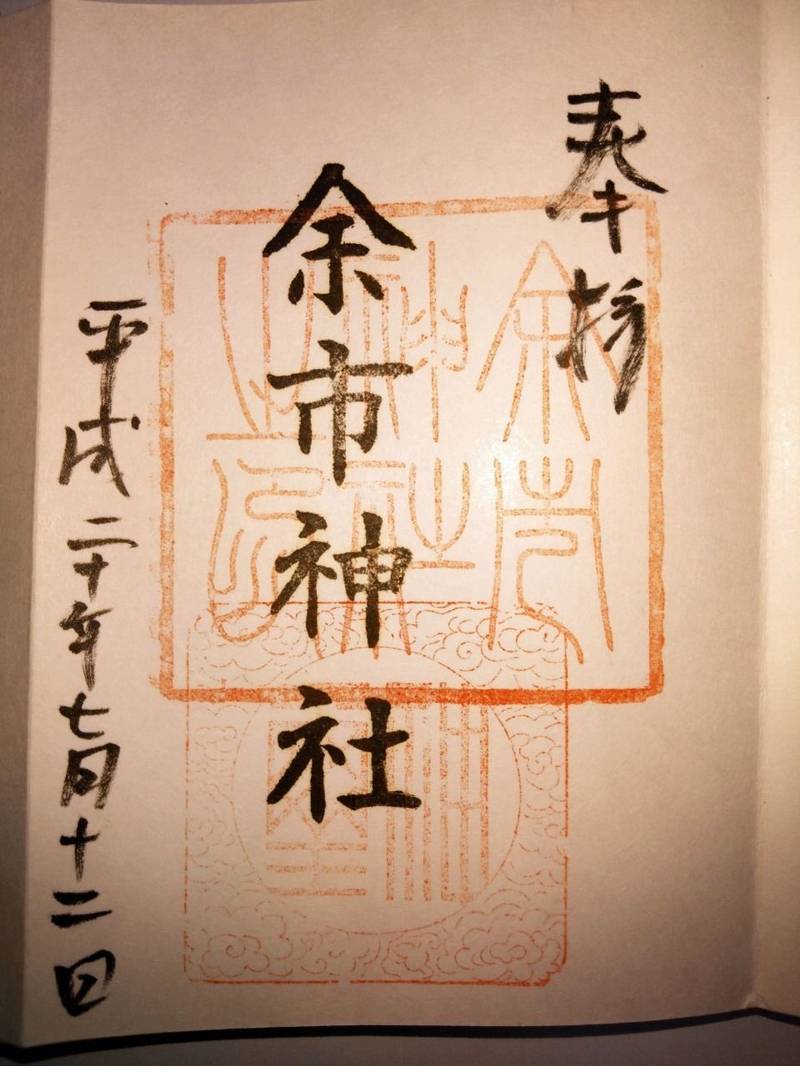 奉拝
余市神社
平成二十年七月十二日
余市
神社
之印